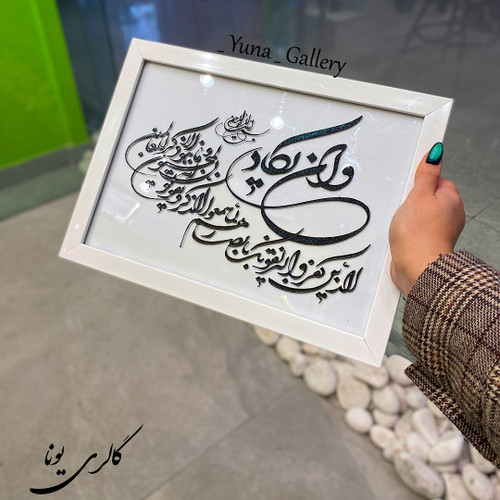 _ Yuna _ Gallery
بسم الله الرحمن الرحیم
وان یکاد
الذین کفروا لیزلقونک بابصارهم
لما سمعوا الذکر و یقولون
انه لمجنون و ما هو الا ذکر للعالمین
گالری یونا